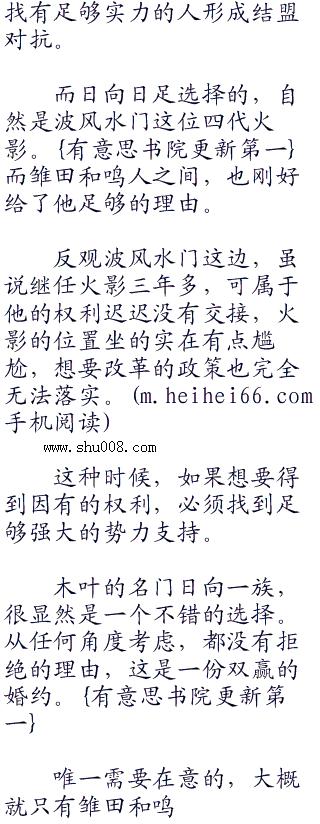 找有足够实力的人形成结盟
对抗。
而日向日足选择的，自
然是波风水门这位四代火
影。{有意思书院更新第一}
而雏田和鸣人之间，也刚好
给了他足够的理由。
反观波风水门这边，虽
说继任火影三年多，可属于
他的权利迟迟没有交接，火
影的位置坐的实在有点尴
尬，想要改革的政策也完全
无法落实。(m.heihei66.com
手机阅读)
www.shu008.com
这种时候，如果想要得
到因有的权利，必须找到足
够强大的势力支持。
木叶的名门日向一族，
很显然是一个不错的选择。
从任何角度考虑，都没有拒
绝的理由，这是一份双赢的
婚约。{有意思书院更新第
一}
唯一需要在意的，大概
就只有雏田和鸣